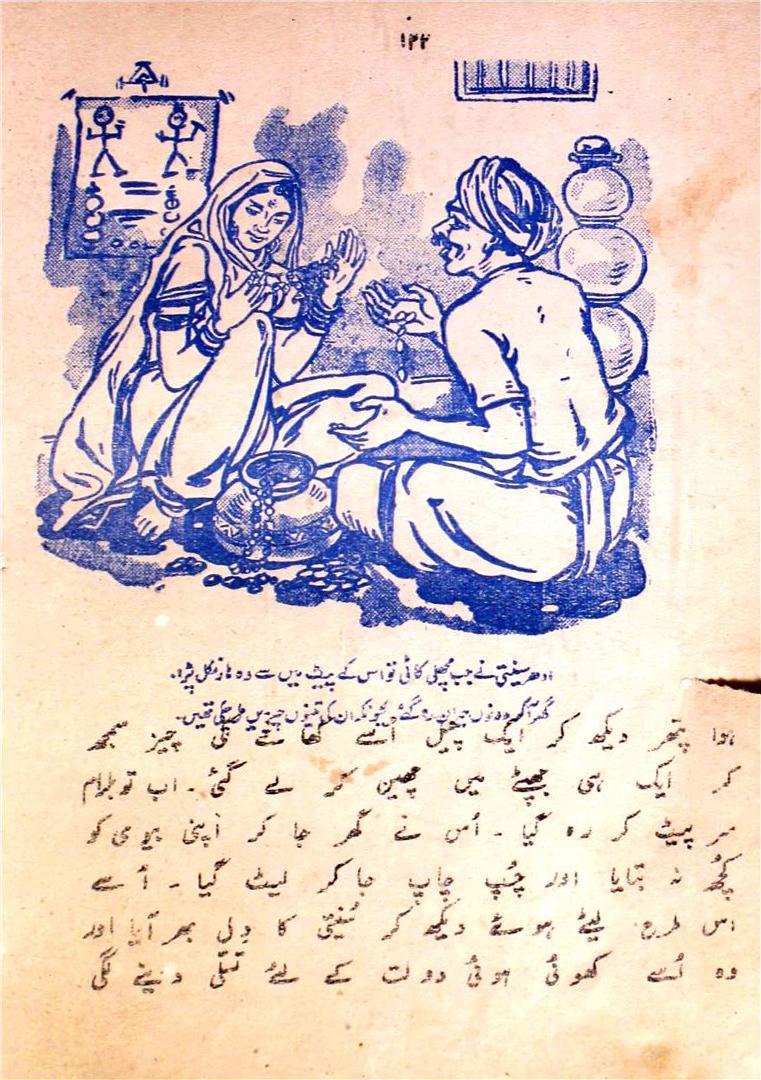 ۱۲۲
ادھر سنیتی نے جب مچھلی کاٹی تو اس کے پیٹ میں سے وہ ہار نکل پڑا۔
گھر آ کر دونوں حیران رہ گئے کیونکہ ان کی تینوں چیزیں مل چکی تھیں۔
ہوا پتھر دیکھ کر ایک چیل اُسے کھانے کی چیز سمجھ
کر ایک ہی جھپٹے میں چھین کر لے گئی۔ اب تو بلرام
سر پیٹ کر رہ گیا۔ اُس نے گھر جا کر اپنی بیوی کو
کچھ نہ بتایا اور چُپ چاپ جا کر لیٹ گیا۔ اُسے
اس طرح لیٹے ہوئے دیکھ کر سُنیتی کا دِل بھر آیا اور
وہ اُسے کھوئی ہوئی دولت کے لئے تسلی دینے لگی